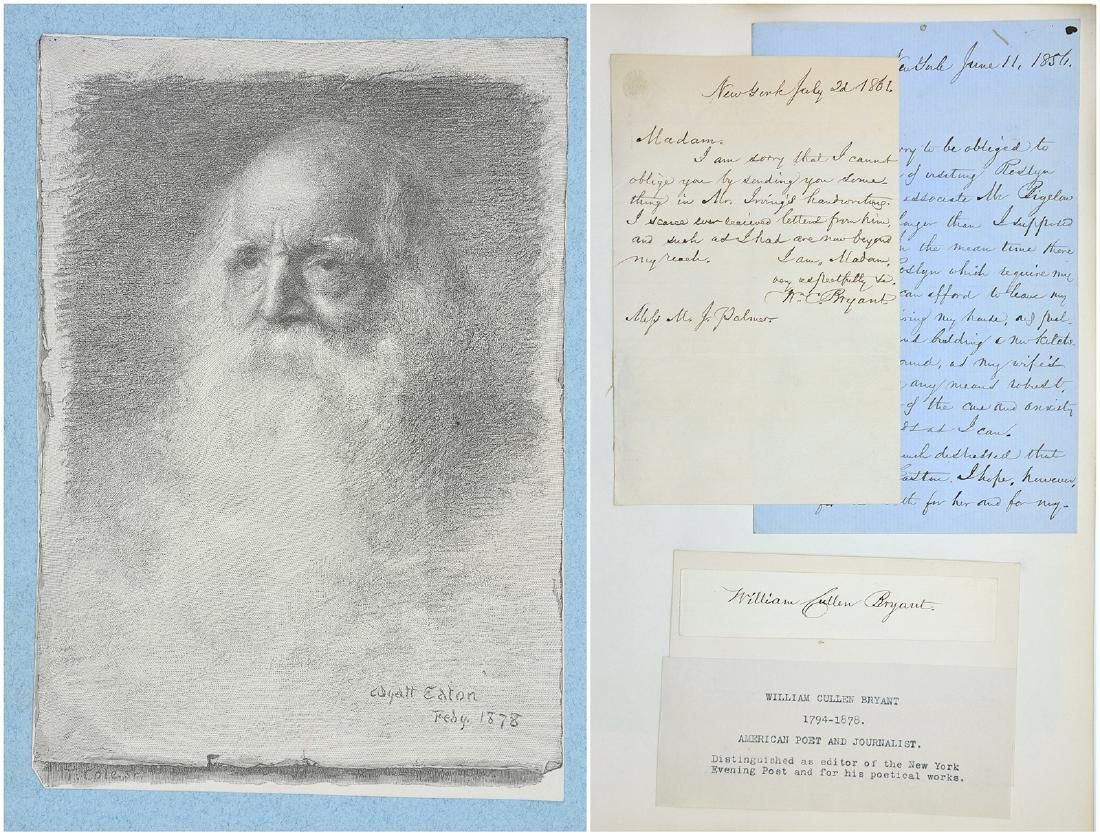 Wyatt Eaton
Feby. 1878
T. Cole Sc.
New York July 2d 1861.
Madam.
I am sorry that I cannot
oblige you by sending you some-
thing in Mr. Irving's handwriting.
I scarce ever received letters from him,
and such as I had are now beyond
my reach. I am, Madam,
very respectfully &c.
Wm. C. Bryant
Miss M. J. Palmer.
York June 11, 1856.
to be obliged to
of visiting Roslyn
associate Mr Bigelow
longer than I supposed
n the mean time there
Roslyn which require my
can afford to leave my
my house, and
building a new kitche
ound, as my wife's
any means robust,
of the care and anxiety
as I can.
much distressed that
I hope, however,
for her and for my-
William Cullen Bryant.
WILLIAM CULLEN BRYANT
1794-1878.
AMERICAN POET AND JOURNALIST.
Distinguished as editor of the New York
Evening Post and for his poetical works.